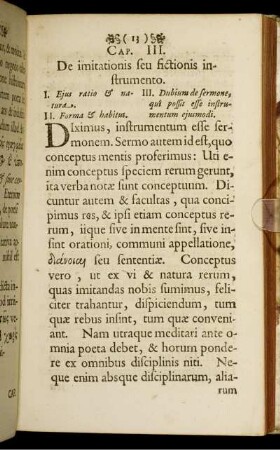 ( 13 )
CAP. III.
De imitationis seu fictionis in-
strumento.
I. Ejus ratio & na- III. Dubium de sermone,
tura. qui possit esse instru-
II. Forma & habitus. mentum ejusmodi.
Diximus, instrumentum esse ser-
monem. Sermo autem id est, quo
conceptus mentis proferimus: Uti e-
nim conceptus speciem rerum gerunt,
ita verba notæ sunt conceptuum. Di-
cuntur autem & facultas, qua conci-
pimus res, & ipsi etiam conceptus re-
rum, iique sive in mente sint, sive in-
sint orationi, communi appellatione,
διάνοιαι, seu sententiæ. Conceptus
vero, ut ex vi & natura rerum,
quas imitandas nobis sumimus, feli-
citer trahantur, dispiciendum, tum
quæ rebus insint, tum quæ conveni-
ant. Nam utraque meditari ante o-
mnia poeta debet, & horum ponde-
re ex omnibus disciplinis niti. Ne-
que enim absque disciplinarum, alia-
rum